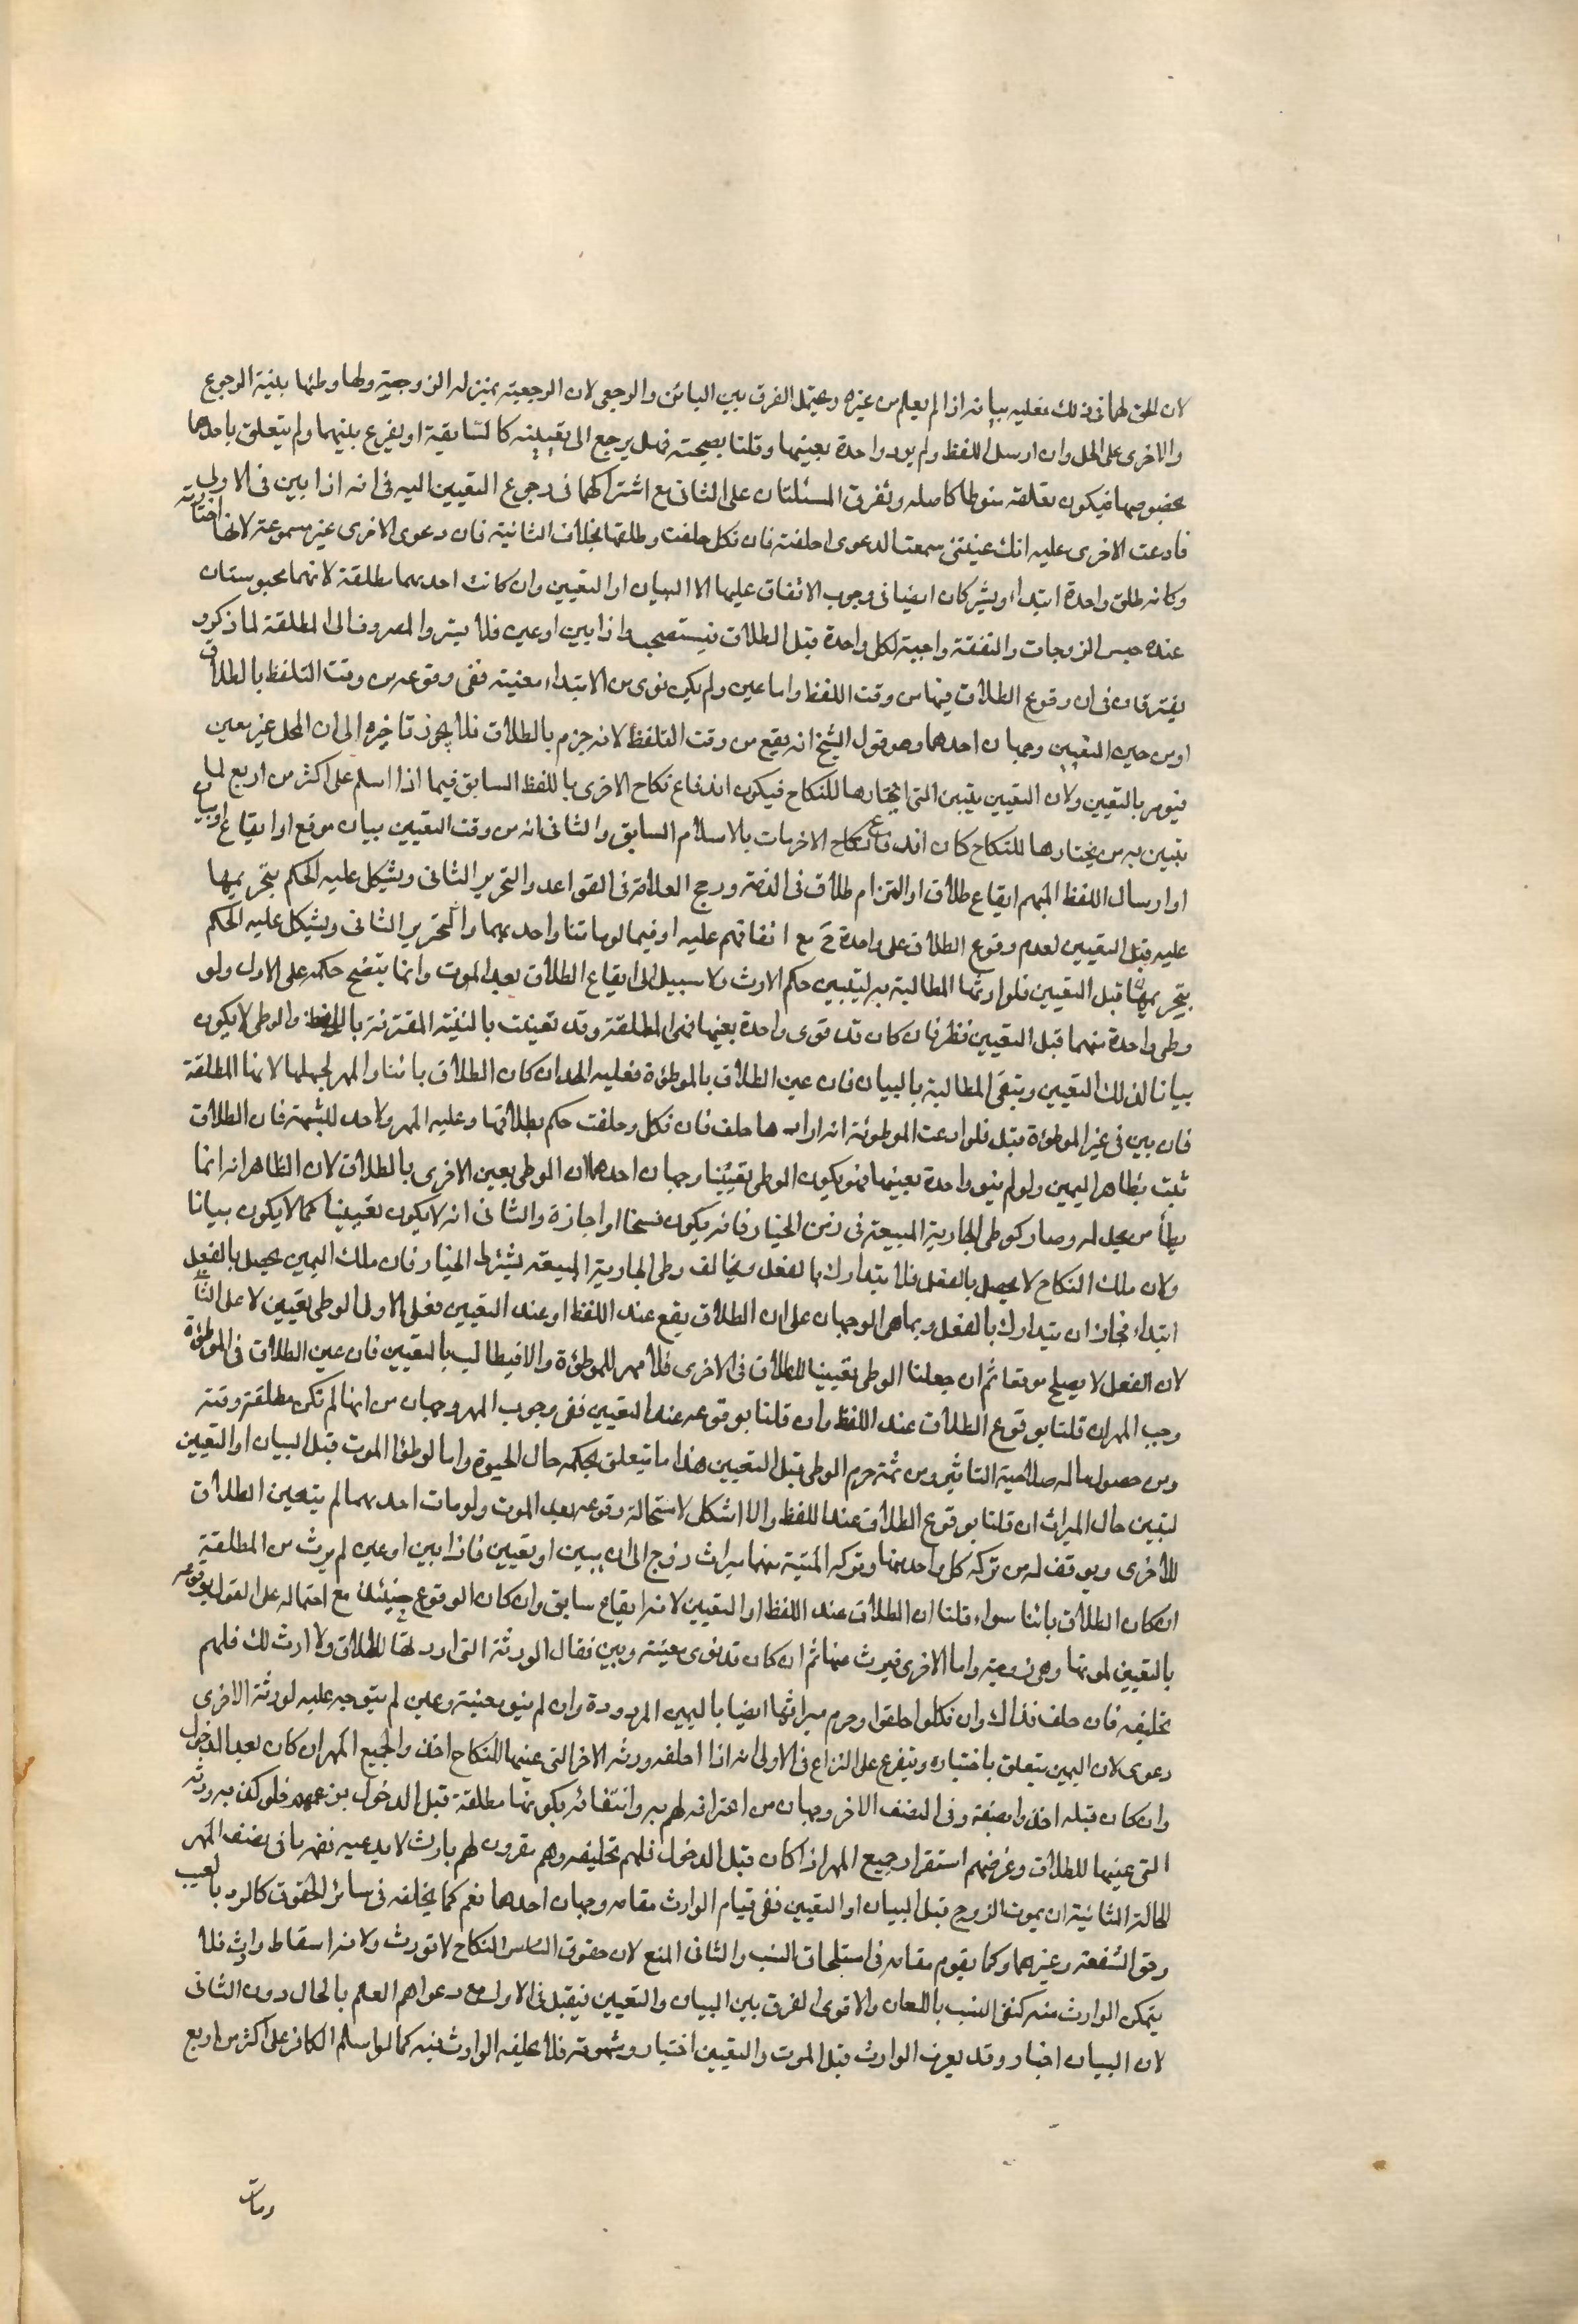 لان الحق لهما فى ذلك فعليه بيانه اذا لم يعلم من غيره ويحتمل الفرق بين البائن والرجعى لان الرجعية بمنزله الزوجية ولها وطئها بنية الرجوع
والاخرى على الحل وان ارسل اللفظ ولم يرد واحدة بعينها وقلنا بصحيته فهل يرجع الى تعيينه كالسابقية او يقرع بينهما ولم يتعلق باحدهما
بخصوصها فيكون تعلقه منوطا كاصله وتفرق المسئلتان على الثانى مع اشتراكهما فى رجوع التعيين اليه فى انه اذا بين فى الاولى
فادعت الاخرى عليه انك عنيتنى سمعت الدعوى احلفته فان نكل حلفت وطلقتا بخلاف الثانية فان دعوى الاخرى غير مسموعة لانها اختارته
وكانه طلق واحدة ابتداء ويشتركان ايضا فى وجوب الانفاق عليهما الا البيان او التعيين وان كانت احديهما مطلقة لانهما محبوستان
عنده حبس الزوجات والنفقة واجبة لكل واحدة قبل الطلاق فيستصحب واذا بين او عين فلا يسترد المصروف الى المطلقة لما ذكر و
يفترقان فى ان وقوع الطلاق فيها من وقت اللفظ واما عين ولم يكن نوى من الابتداء معنية ففى وقوعه من وقت التلفظ بالطلاق
او من حين التعيين وجهان احدهما وهو قول الشيخ انه يقع من وقت التلفظ لانه جزم بالطلاق فلا يجوز تاخيره الى ان المحل غير معين
فيؤمر بالتعيين ولان التعيين يتبين التى اختارها للنكاح فيكون اندفاع نكاح الاخرى باللفظ السابق فيما اذا اسلم على اكثر من اربع لما
تبين به من يختارها للنكاح كان اندفاع نكاح الاخريات بالاسلام السابق والثانى انه من وقت التعيين بيان موقع او ايقاع او بيان
او ارسال اللفظ المبهم ايقاع طلاق او التزام طلاق فى الذمة ورجح العلامة فى القواعد والتحرير الثانى ويشكل عليه الحكم بتحريمها
عليه قبل التعيين لعدم وقوع الطلاق على واحدة ح مع اتفاقهم عليه او فيما لو ماتتا واحديهما والتحرير الثانى ويشكل عليه الحكم
بتحريمها قبل التعيين فلوارثها المطالبة به ليتبين حكم الارث ولا سبيل الى ايقاع الطلاق بعد الموت وانما يتضح حكمه على الاول ولو
وطى واحدة منهما قبل التعيين نظر فان كان قد نوى واحدة بعينها فهى المطلقة وقد تعينت بالنية المقترنة باللفظ والوطى لا يكون
بيانا لذلك التعيين وتبقى المطالبة بالبيان فان عين الطلاق بالموطؤة فعليه الحد ان كان الطلاق بائنا والمهر لجهلها لانها المطلقة
فان بين فى غير الموطؤة قبل فلو ادعت الموطوئة انه ارادها حلف فان نكل وحلفت حكم بطلاقها وعليه المهر ولا حد للشبهة فان الطلاق
ثبت بظاهر اليمين ولو لم ينو واحدة بعينها فهو يكون الوطى تعيينا وجهان احدهما ان الوطى يعين الاخرى بالطلاق لان الظاهر انه انما
يطأ من يحل له وصار كوطى الجارية المبيعة فى زمن الخيار فانه يكون فسخا او اجازة والثانى انه لا يكون تعيينا كما لا يكون بيانا
ولان ملك النكاح لا يحصل بالفعل فلا يتدارك بالفعل ويخالف وطى الجارية المبيعة بشرط الخيار فان ملك اليمين يحصل بالفعل
ابتداء فجاز ان يتدارك بالفعل وربما بنى الوجهان على ان الطلاق يقع عند اللفظ او عند التعيين فعلى الاول الوطى تعيين لا على الثانى
لان الفعل لا يصلح موقعا ثم ان جعلنا الوطى تعيينا للطلاق فى الاخرى فلا مهر للموطؤة والا فيطالب بالتعيين فان عين الطلاق فى الموطؤة
وجب المهر ان قلنا بوقوع الطلاق عند اللفظ وان قلنا بوقوعه عند التعيين ففى وجوب المهر وجهان من انها لم تكن مطلقة وقته
ومن حصول ما له صلاحية التاثير ومن ثمة حرم الوطى قبل التعيين هذا ما يتعلق بحكمه حال الحيوة واما لو طئا الموت قبل البيان او التعيين
لتبين حال الميراث ان قلنا بوقوع الطلاق عند اللفظ والا اشكل لاستحالة وقوعه بعد الموت ولو مات احديهما لم يتعين الطلاق
للاخرى ويوقف له من تركه كل واحد منهما وتوكه الميتة منهما ميراث زوج الى ان يبين او يعيين فاذا بين او عين لم يرث من المطلقة
ان كان الطلاق بائنا سواء قلنا ان الطلاق عند اللفظ او التعيين لانه ايقاع سابق وان كان الوقوع حينئذ مع احتماله على القول بوقوعه
بالتعيين لموتها وهى زوجة واما الاخرى فيرث منها ثم ان كان قد نوى معينة وبين فقال الورثة التى ارد لها للطلاق ولا ارث لك فلهم
تحليفه فان حلف فذاك وان نكلوا حلفوا وحرم ميراثها ايضا باليمين المردودة وان لم ينو معنية وعين لم يتوجه عليه لورثة الاخرى
دعوى لان اليمين يتعلق باختياره ويتفرع على النزاع فى الاولى انه اذا احلفه ورثه الاخر التى عينها للنكاح اخذوا جميع المهر ان كان بعد الدخول
وان كان قبله اخذوا نصفه وفى النصف الاخر وجهان من اعترافه لهم به وانتفائه بكونها مطلقة قبل الدخول بزعمهم فلو كف به ورثه
التى عينها للطلاق وغرضهم استقرار جميع المهر اذا كان قبل الدخول فلهم تحليفه وهم مقرون لهم بارث لا يدعيه نصهم بانى نصف المهر
الحالة الثانية ان يموت الزوج قبل البيان او التعيين ففى قيام الوارث مقامه وجهان احدهما نعم كما يخلفه فى سائر الحقوق كالرد بالعيب
وحق الشفعة وغيرهما وكما يقوم مقامه فى استلحاق النسب والثانى المنع لان حقوق النكاح لا تورث ولانه اسقاط وارث فلا
يتمكن الوارث منه كنفى النسب باللعان والاقوى الفرق بين البيان والتعيين فيقبل فى الاول مع دعواهم العلم بالحال دون الثانى
لان البيان اخبار وقد يعرف الوارث قبل الموت والتعيين اختيار وشهوة فلا يخلفه الوارث فيه كما لو اسلم الكافر على اكثر من اربع
ومات